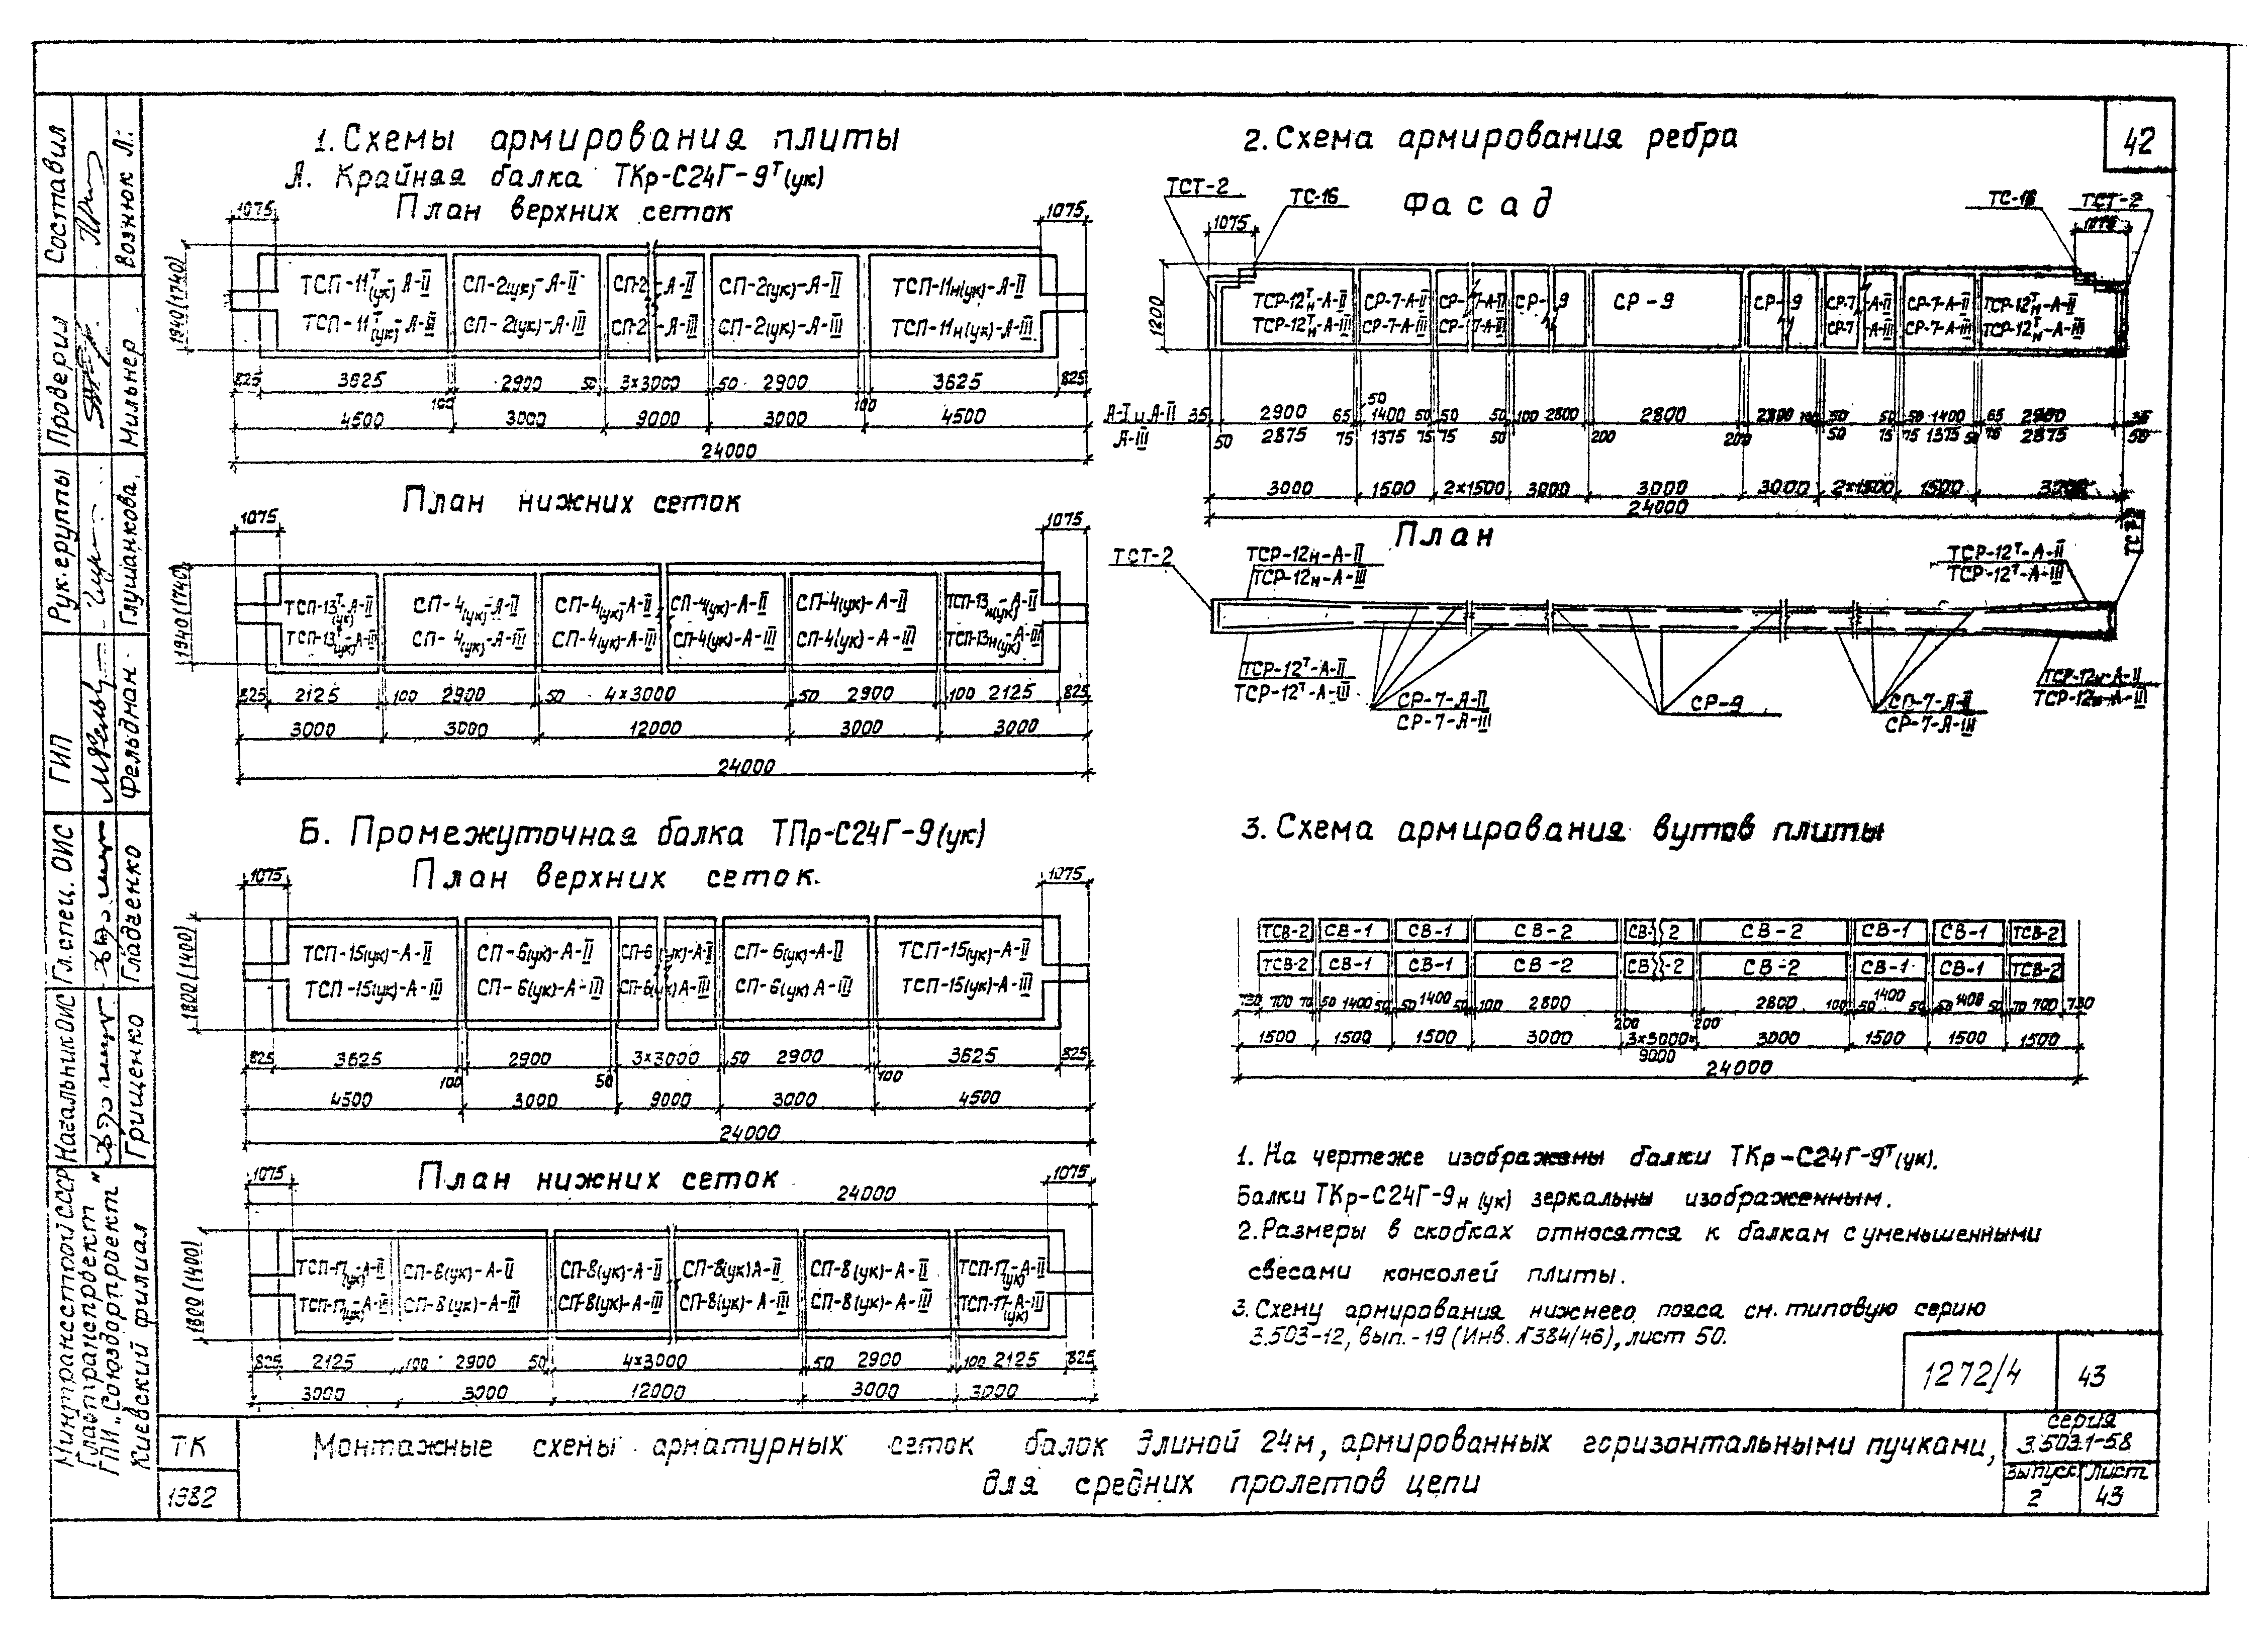 42
1. Схемы армирования плиты
А. Крайняя балка ТКр-С24Г-9Т(ук)
План верхних сеток
1075 1075
1940(1740)
ТСП-11Т(ук)-А-II СП-2(ук)-А-II СП-2 -А-II СП-2(ук)-А-II ТСП-11н(ук)-А-II
ТСП-11Т(ук)-А-III СП-2(ук)-А-III СП-2 -А-III СП-2(ук)-А-III ТСП-11н(ук)-А-III
825 3625 2900 50 3×3000 50 2900 3625 825
100 100
4500 3000 9000 3000 4500
24000
План нижних сеток
1075 1075
1940(1740)
ТСП-13Т(ук)-А-II СП-4(ук)-А-II СП-4(ук)-А-II СП-4(ук)-А-II СП-4(ук)-А-II ТСП-13н(ук)-А-II
ТСП-13Т(ук)-А-III СП-4(ук)-А-III СП-4(ук)-А-III СП-4(ук)-А-III СП-4(ук)-А-III ТСП-13н(ук)-А-III
825 2125 100 2900 50 4×3000 50 2900 100 2125 825
3000 3000 12000 3000 3000
24000
Б. Промежуточная балка ТПр-С24Г-9(ук)
План верхних сеток.
1075 1075
1800(1400)
ТСП-15(ук)-А-II СП-6(ук)-А-II СП-6(ук)-А-II СП-6(ук)-А-II ТСП-15(ук)-А-II
ТСП-15(ук)-А-III СП-6(ук)-А-III СП-6(ук)А-III СП-6(ук)А-III ТСП-15(ук)-А-III
825 3625 2900 3×3000 50 2900 3625 825
100 50 100
4500 3000 9000 3000 4500
24000
План нижних сеток
1075 1075
24000
1800(1400)
ТСП-17(ук)-А-II СП-8(ук)-А-II СП-8(ук)-А-II СП-8(ук)А-II СП-8(ук)-А-II ТСП-17(ук)-А-II
ТСП-17(ук)-А-III СП-8(ук)-А-III СП-8(ук)-А-III СП-8(ук)-А-III СП-8(ук)-А-III ТСП-17(ук)-А-III
825 2125 100 2900 50 4×3000 50 2900 100 2125 825
3000 3000 12000 3000 3000
2. Схема армирования ребра
Фасад
ТСТ-2 ТС-16 ТС-16 ТСТ-2
1075 1075
1200
ТСР-12Тн-А-II СР-7-А-II СР-7-А-II СР-9 СР-9 СР-9 СР-7-А-II СР-7-А-II ТСР-12Тн-А-II
ТСР-12Тн-А-III СР-7-А-III СР-7-А-III СР-7-А-III СР-7-А-III ТСР-12Тн-А-III
А-I и А-II 35 2900 65 50 1400 50 50 50 100 2800 2800 2800 100 50 50 50 1400 65 2900 35
А-III 50 2875 75 1375 75 75 50 200 200 50 75 75 1375 50 75 2875 50
3000 1500 2×1500 3000 3000 3000 2×1500 1500 3000
24000
План
ТСТ-2 ТСТ-2
ТСР-12н-А-II ТСР-12Т-А-II
ТСР-12н-А-III ТСР-12Т-А-III
ТСР-12Т-А-II СР-7-А-II СР-9 СР-7-А-II ТСР-12н-А-II
ТСР-12Т-А-III СР-7-А-III СР-7-А-III ТСР-12н-А-III
3. Схема армирования вутов плиты
ТСВ-2 СВ-1 СВ-1 СВ-2 СВ-2 СВ-2 СВ-1 СВ-1 ТСВ-2
ТСВ-2 СВ-1 СВ-1 СВ-2 СВ-2 СВ-2 СВ-1 СВ-1 ТСВ-2
730 700 70 50 1400 50 50 1400 50 100 2800 2800 100 50 1400 50 50 1400 50 70 700 730
200 200
1500 1500 1500 3000 3×3000= 3000 1500 1500 1500
9000
24000
1. На чертеже изображены балки ТКр-С24Г-9Т(ук).
Балки ТКр-С24Г-9н (ук) зеркальны изображенным.
2. Размеры в скобках относятся к балкам с уменьшенными
свесами консолей плиты.
3. Схему армирования нижнего пояса см. типовую серию
3.503-12, вып.-19 (Инв. №384/46), лист 50.
1272/4 43
ТК
1982
Монтажные схемы арматурных сеток балок длиной 24м, армированных горизонтальными пучками,
для средних пролетов цепи
серия
3.503.1-58
Выпуск Лист
2 43
Составил Вознюк Л.
Проверил Мильнер
Рук. группы Глушанкова
ГИП Фельдман
Гл. спец. ОИС Гладаенко
Начальник ОИС Грищенко
Минтрансстрой СССР
Главтранспроект
ГПИ „Союздорпроект"
Киевский филиал